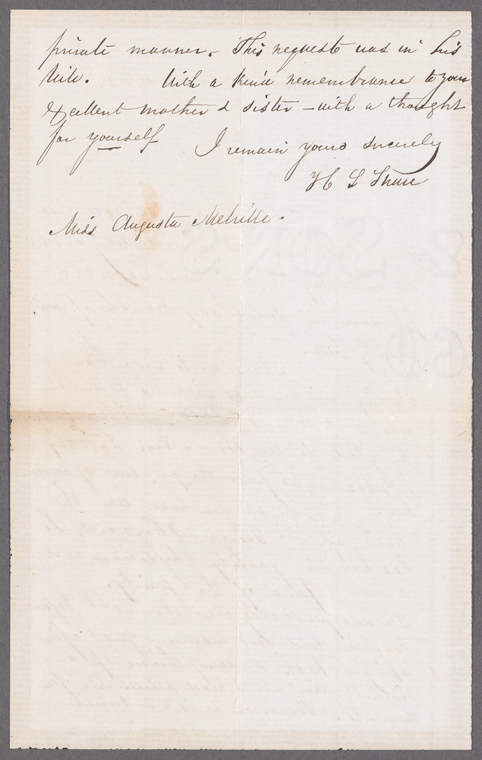 private manner. This request was in his
Will. With a kind remembrance to your
Excellent mother & sister – with a thought
for yourself I remain yours sincerely
H S Shaw
Miss Augusta Melville.